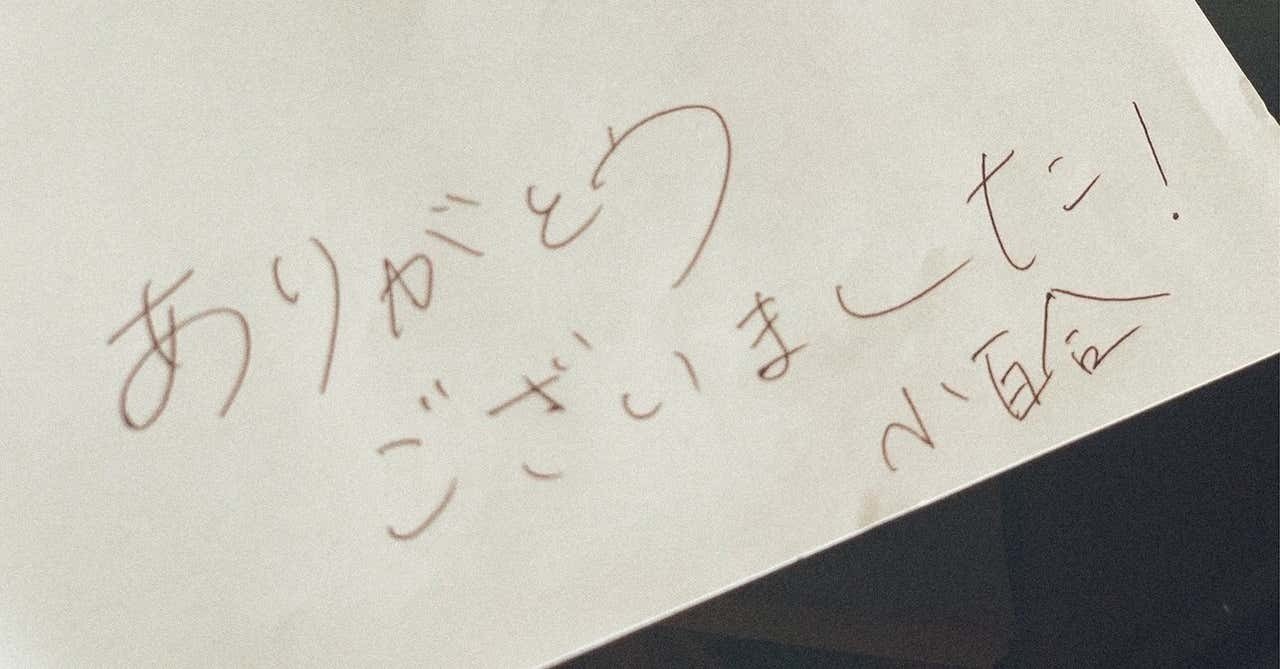 ありがとう
ございました!
小百合